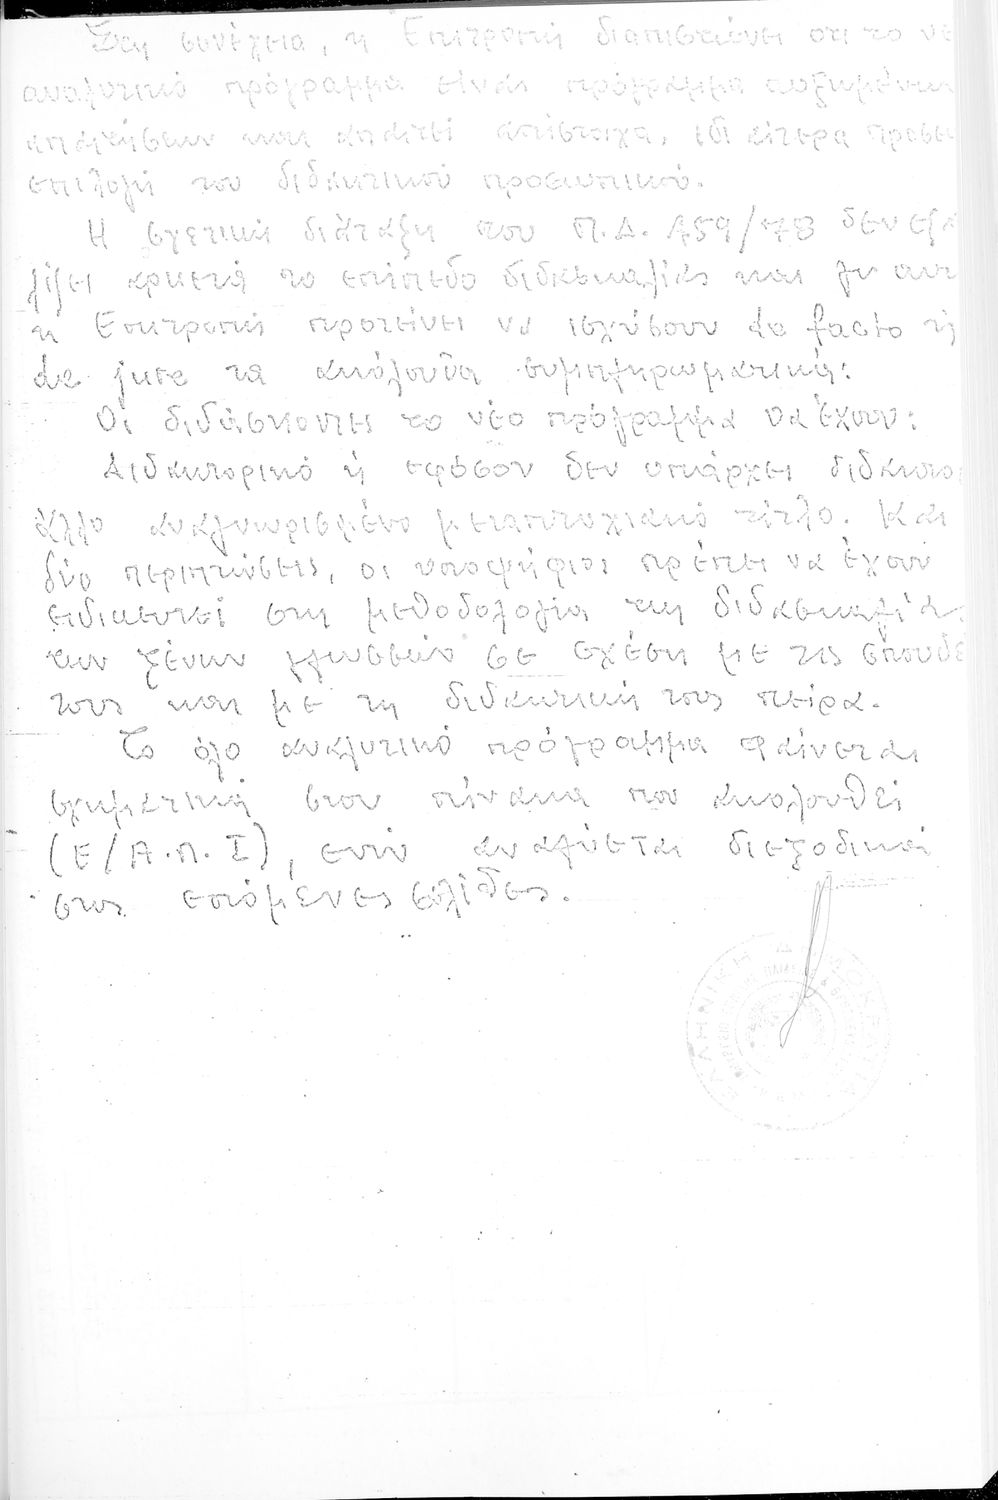 Στη συνέχεια, η Επιτροπή διαπιστώνει οτι το νέ
αναλυτικό πρόγραμμα είναι πρόγραμμα αυξημένων
απαιτήσεων και απαιτεί αντίστοιχα, ιδιαίτερα προσε
επιλογή του διδακτικού προσωπικού.
Η σχετική διάταξη του Π.Δ. 459/78 δεν εξα
λίζει αρκετά το επίπεδο διδασκαλίας και γι αυτ
η Επιτροπή προτείνει να ισχύσουν de facto ή
de jure τα ακόλουθα συμπληρωματικά:
Οι διδάσκοντες το νέο πρόγραμμα να έχουν:
Διδακτορικό ή εφόσον δεν υπάρχει διδακτο
άλλο αναγνωρισμένο μεταπτυχιακό τίτλο. Και
δύο περιπτώσεις, οι υποψήφιοι πρέπει να έχουν
ειδικευτεί στη μεθοδολογία της διδασκαλία
των ξένων γλωσσών σε σχέση με τις σπουδέ
τους και με τη διδακτική τους πείρα.
Το όλο αναλυτικό πρόγραμμα φαίνεται
σχηματικά στον πίνακα που ακολουθεί
(Ε/Α.Π. Ι), ενώ αναλύεται διεξοδικά
στις επόμενες σελίδες.
ΕΛΛΗΝΙΚΗ ΔΗΜΟΚΡΑΤΙΑ